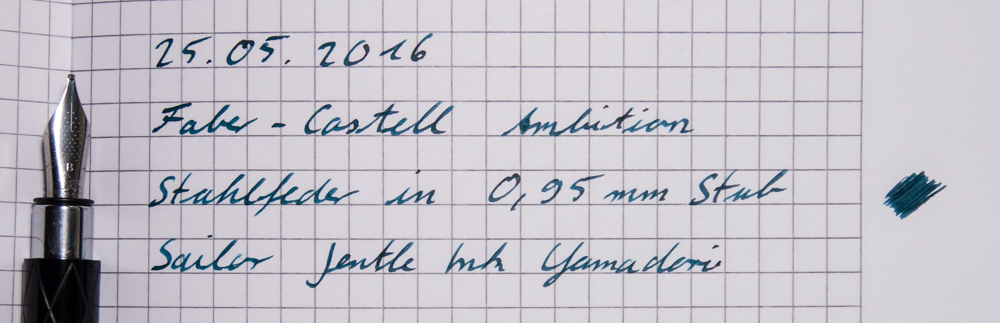 25.05.2016
Faber-Castell Ambition
Stahlfeder in 0,95 mm Stub
Sailor Jentle Ink Yamadori
B